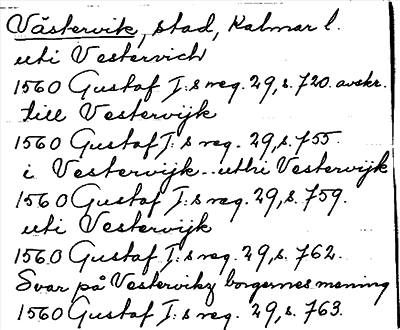 Västervik, stad, Kalmar l.
uti Vestervich
1560 Gustaf I:s reg. 29, s. 720. avskr.
till Vesterwijk
1560 Gustaf I:s reg. 29, s. 755.
i Vesterwijk.. uthi Vesterwijk
1560 Gustaf I:s reg. 29, s. 759.
uti Vesterwijk
1560 Gustaf I:s reg. 29, s. 762.
Svar på Vesterviks borgernes mening
1560 Gustaf I:s reg. 29, s. 763.